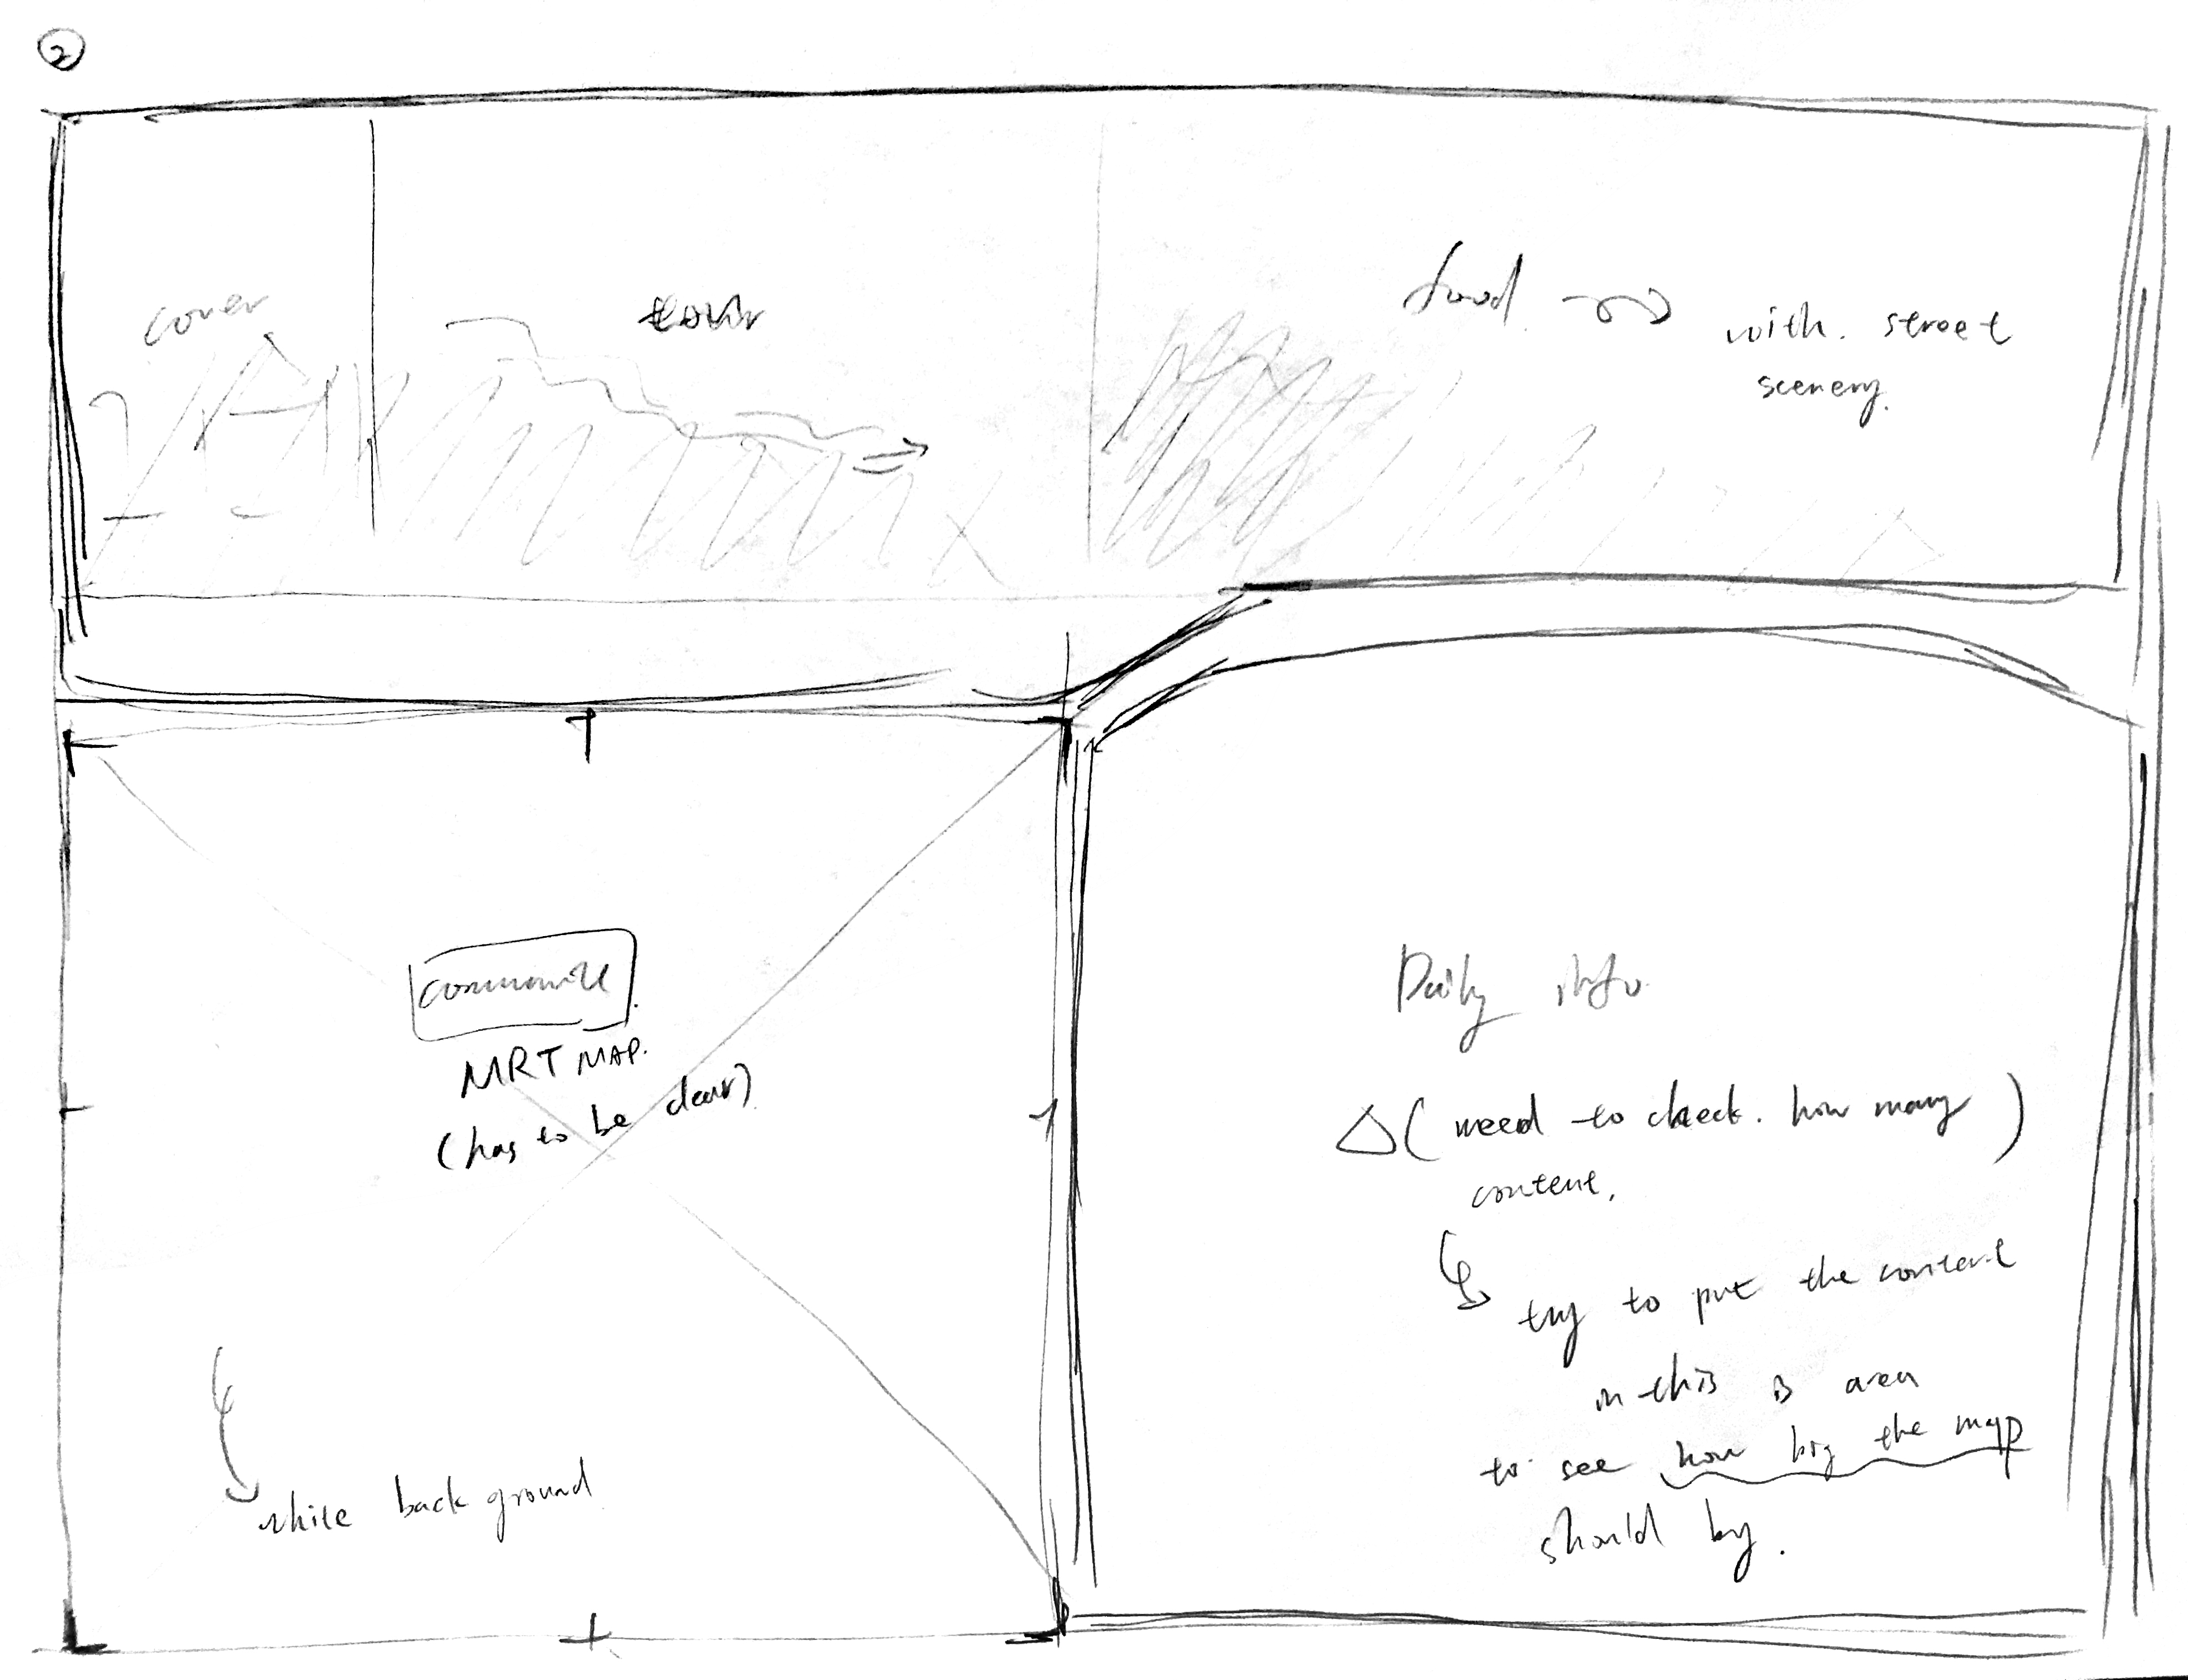 2
cover
tour
food.
with. street
scenery.
MRT MAP.
(has to be clear)
white back ground
Daily info.
(need to check. how many)
content.
try to put the content
in this is area
to see how big the map
should by.